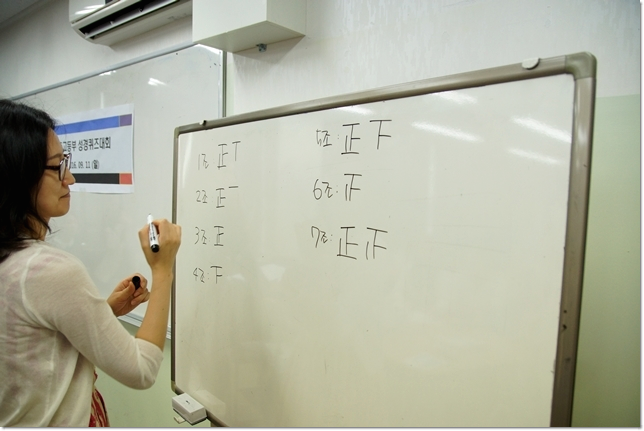 고등부 성경퀴즈대회
16. 09. 11 (일)
1조 正丅
2조 正一
3조 正
4조: 下
5조: 正 下
6조: 正
7조: 正 正